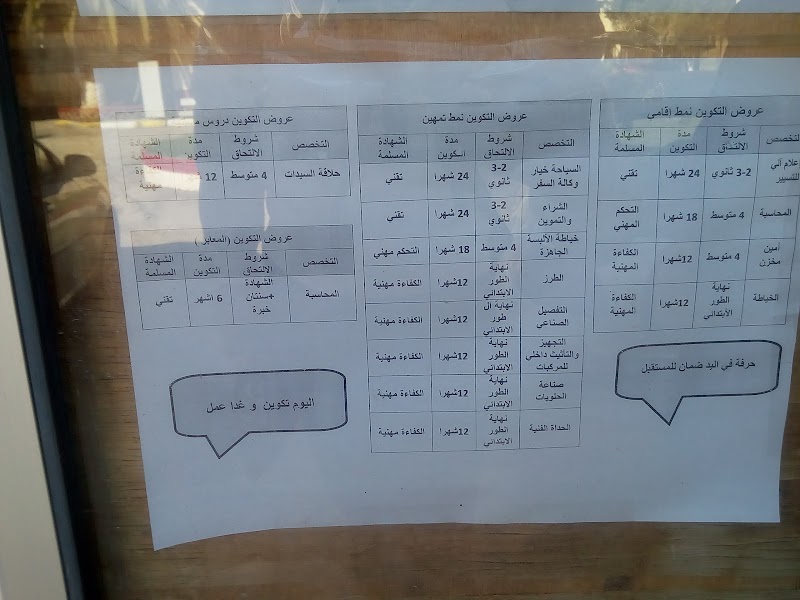 عروض التكوين نمط إقامي
التخصص شروط الالتحاق مدة التكوين الشهادة المسلمة
إعلام آلي للتسيير 2-3 ثانوي 24 شهرا تقني
المحاسبة 4 متوسط 18 شهرا التحكم المهني
أمين مخزن 4 متوسط 12شهرا الكفاءة المهنية
الخياطة نهاية الطور الابتدائي 12شهرا الكفاءة المهنية
حرفة في اليد ضمان للمستقبل
عروض التكوين نمط تمهين
التخصص شروط الالتحاق مدة التكوين الشهادة المسلمة
السياحة خيار وكالة السفر 2-3 ثانوي 24 شهرا تقني
الشراء والتموين 2-3 ثانوي 24 شهرا تقني
خياطة الألبسة الجاهزة 4 متوسط 18 شهرا التحكم مهني
الطرز نهاية الطور الابتدائي 12شهرا الكفاءة مهنية
التفصيل الصناعي نهاية ال طور الابتدائي 12شهرا الكفاءة مهنية
التجهيز والتأثيث داخلي للمركبات نهاية الطور الابتدائي 12شهرا الكفاءة مهنية
صناعة الحلويات نهاية الطور الابتدائي 12شهرا الكفاءة مهنية
الحدادة الفنية نهاية الطور الابتدائي 12شهرا الكفاءة مهنية
عروض التكوين دروس
التخصص شروط الالتحاق مدة التكوين الشهادة المسلمة
حلاقة السيدات 4 متوسط 12 الكفاءة مهنية
عروض التكوين (المعابر )
التخصص شروط الالتحاق مدة التكوين الشهادة المسلمة
المحاسبة الشهادة +سنتان خبرة 6 اشهر تقني
اليوم تكوين و غدا عمل